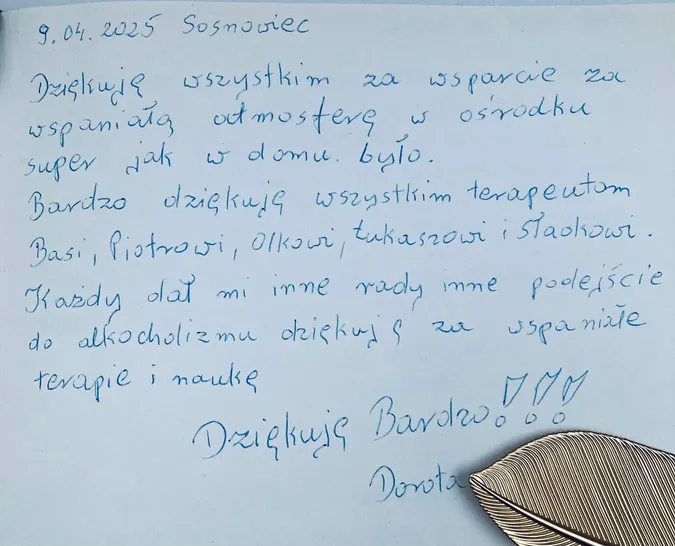 9.04.2025 Sosnowiec
Dziękuję wszystkim za wsparcie za
wspaniałą atmosferę w ośrodku
super jak w domu. było.
Bardzo dziękuję wszystkim terapeutom
Basi, Piotrowi, Olkowi, Łukaszowi i Sławkowi.
Każdy dał mi inne rady inne podejście
do alkocholizmu dziękuję za wspaniałe
terapie i naukę
Dziękuję Bardzo!!!
Dorota